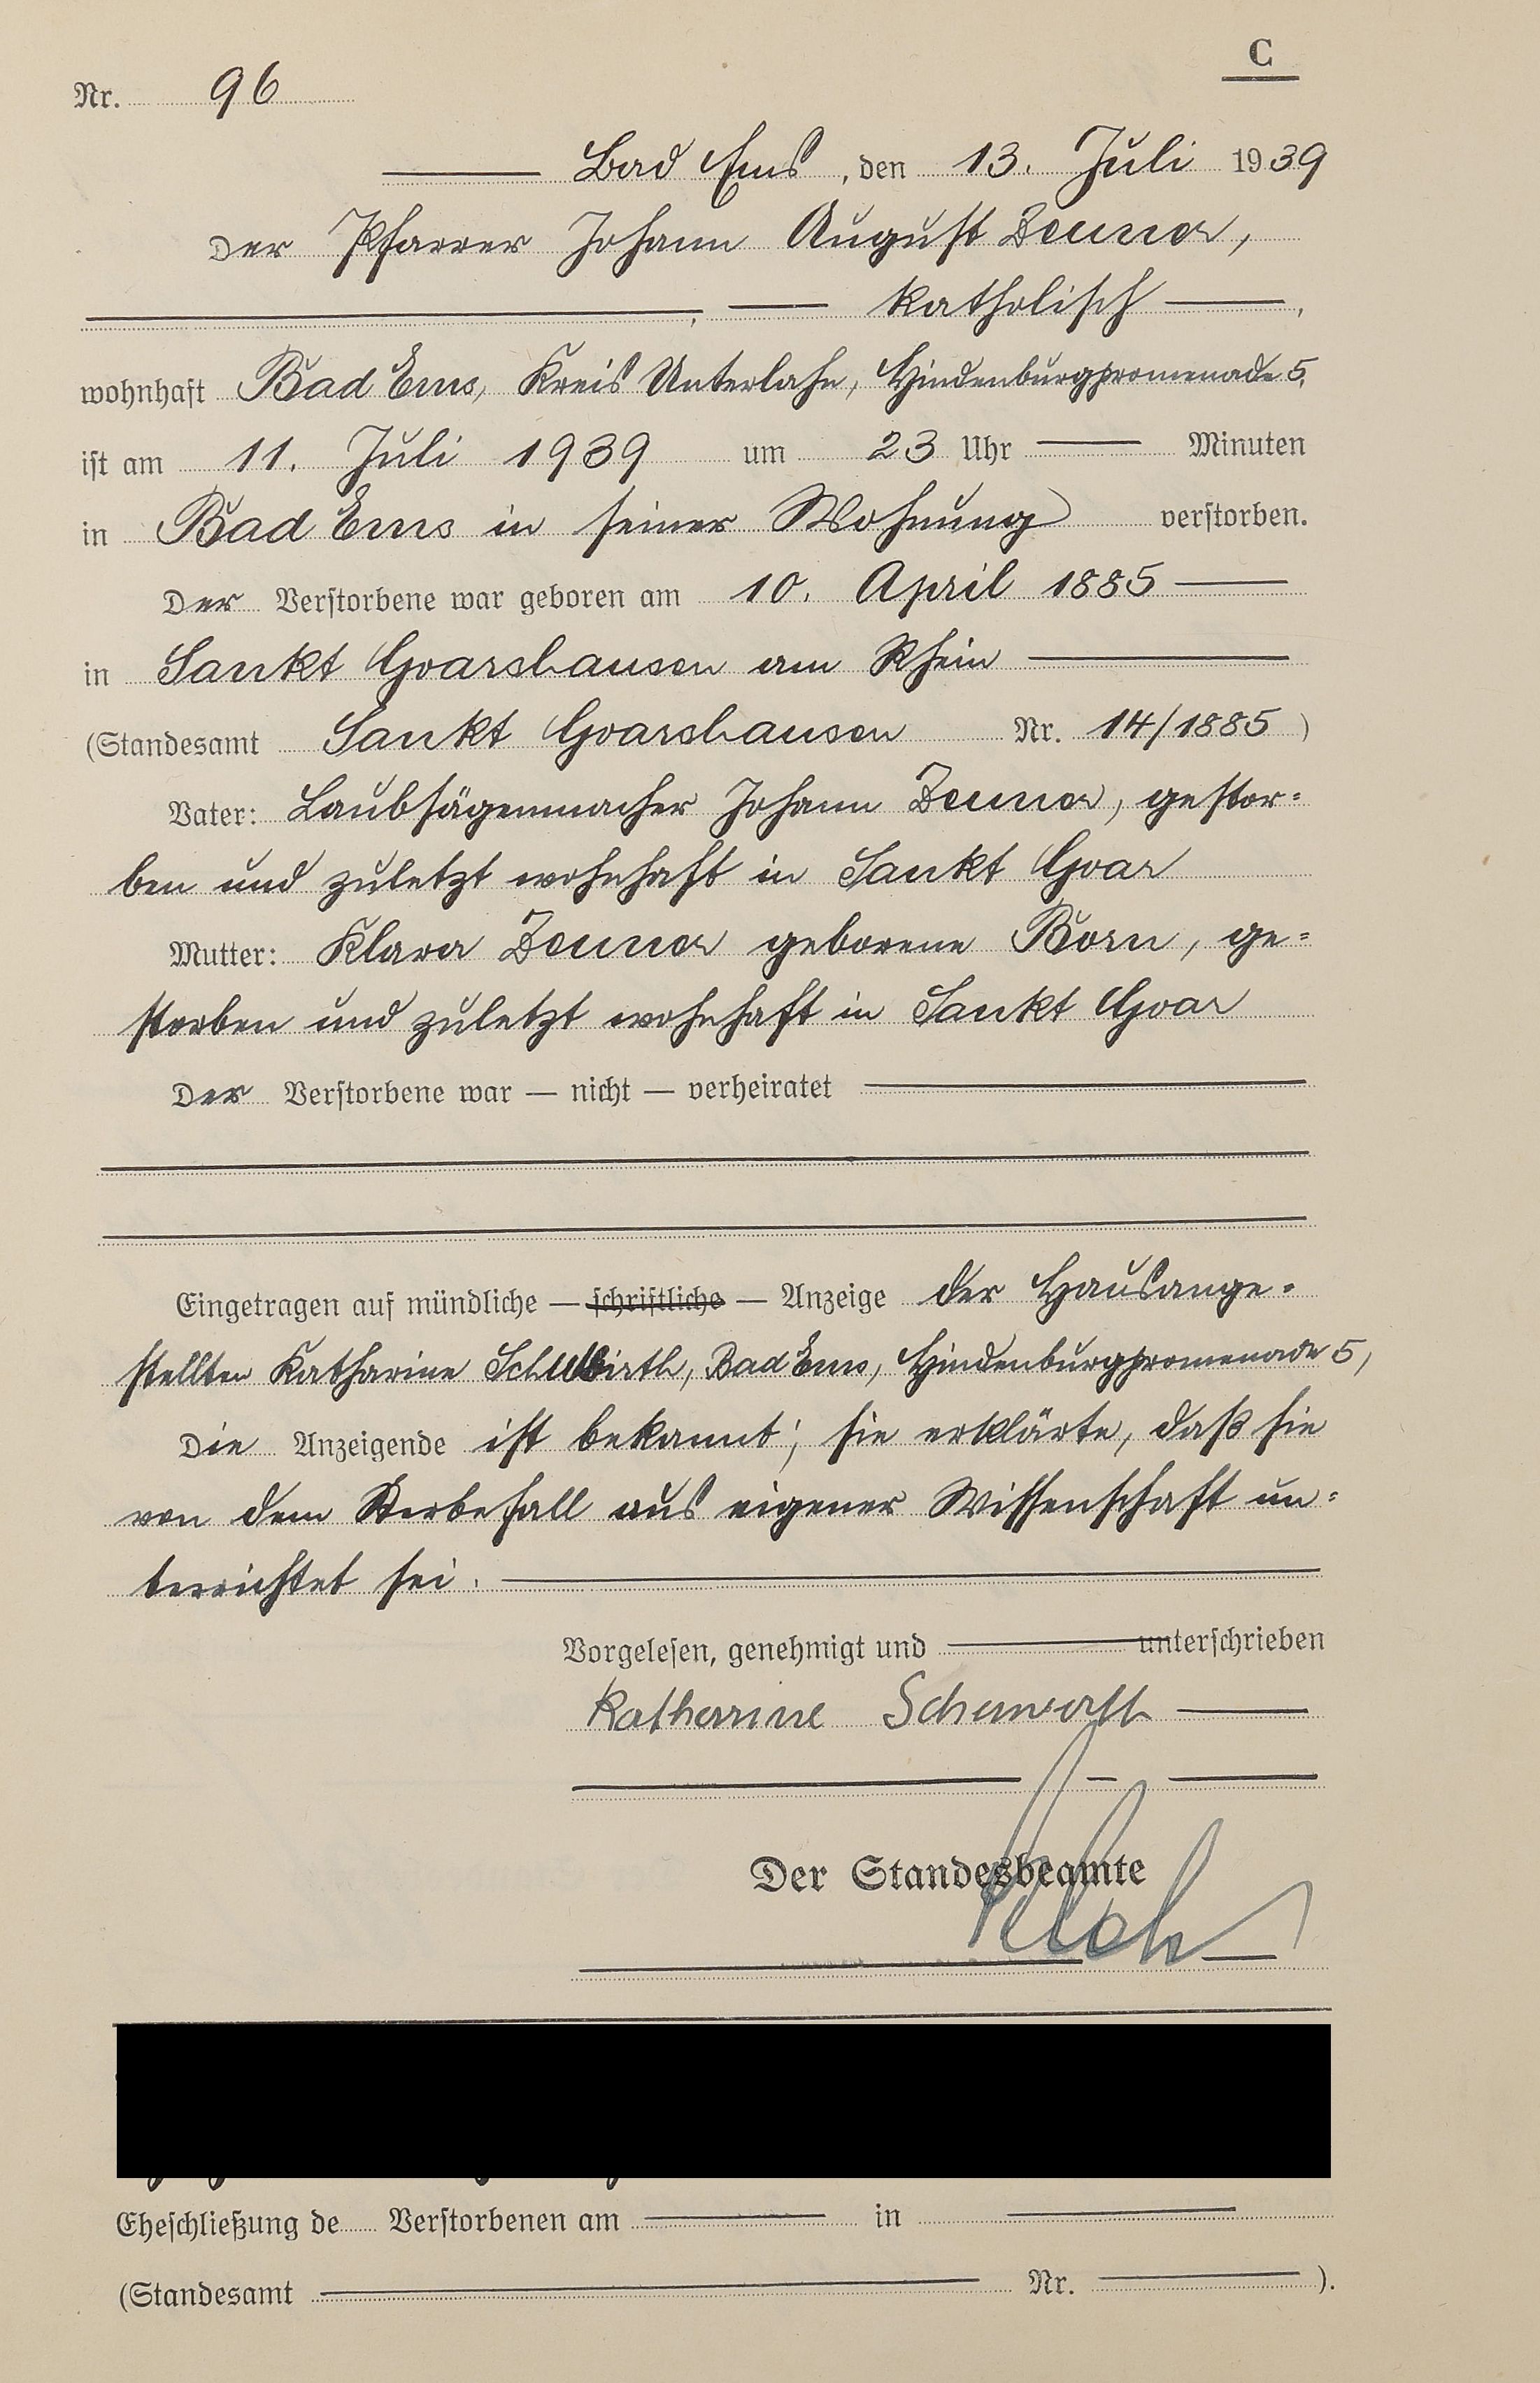 C
Nr. 96
Bad Ems, den 13. Juli 1939
Der Pfarrer Johann August Zeuner,
katholisch,
wohnhaft Bad Ems, Kreis Unterlahn, Hindenburgpromenade 5,
ist am 11. Juli 1939 um 23 Uhr Minuten
in Bad Ems in seiner Wohnung verstorben.
Der Verstorbene war geboren am 10. April 1885
in Sankt Goarshausen am Rhein
(Standesamt Sankt Goarshausen Nr. 14/1885)
Vater: Laubsägenmacher Johann Zeuner, gestor=
ben und zuletzt wohnhaft in Sankt Goar
Mutter: Klara Zeuner geborene Born, ge=
storben und zuletzt wohnhaft in Sankt Goar
Der Verstorbene war — nicht — verheiratet
Eingetragen auf mündliche — schriftliche — Anzeige der Hausange=
stellten Katharine Bad Ems, Hindenburgpromenade 5,
Die Anzeigende ist bekannt; sie erklärte, daß sie
von dem Sterbefall aus eigener Wissenschaft un=
terrichtet sei.
Vorgelesen, genehmigt und unterschrieben
Katharine
Der Standesbeamte
Eheschließung de Verstorbenen am in
(Standesamt Nr. ).